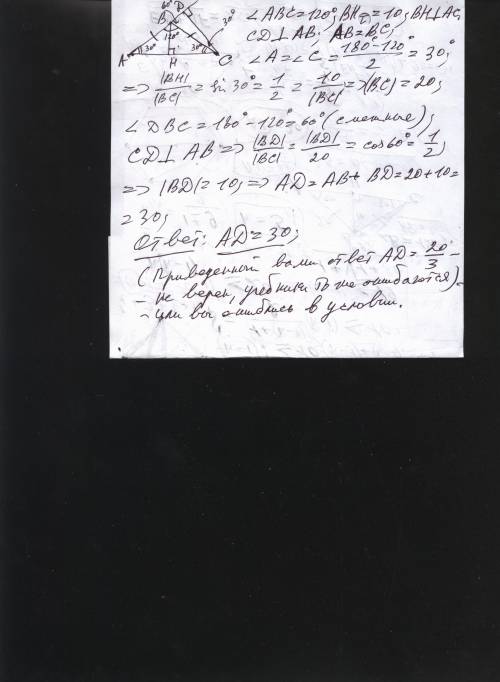 60° D
B 120°
A 30° H 30° C 30°
∠ABC=120°; BH=10; BH⊥AC,
CD⊥AB. AB=BC;
∠A=∠C=(180°-120°)/2=30°;
=> |BH|/|BC| = sin 30° = 1/2 = 10/|BC| => |BC|=20;
∠DBC=180°-120°=60° (смежные);
CD⊥AB => |BD|/|BC| = |BD|/20 = cos60° = 1/2;
=> |BD|=10; => AD=AB+BD=20+10=
=30;
Ответ: AD=30;
(Приведенный вами ответ AD=20/3 -
- не верен, учебники то же ошибаются) -
- или вы ошиблись в условии.